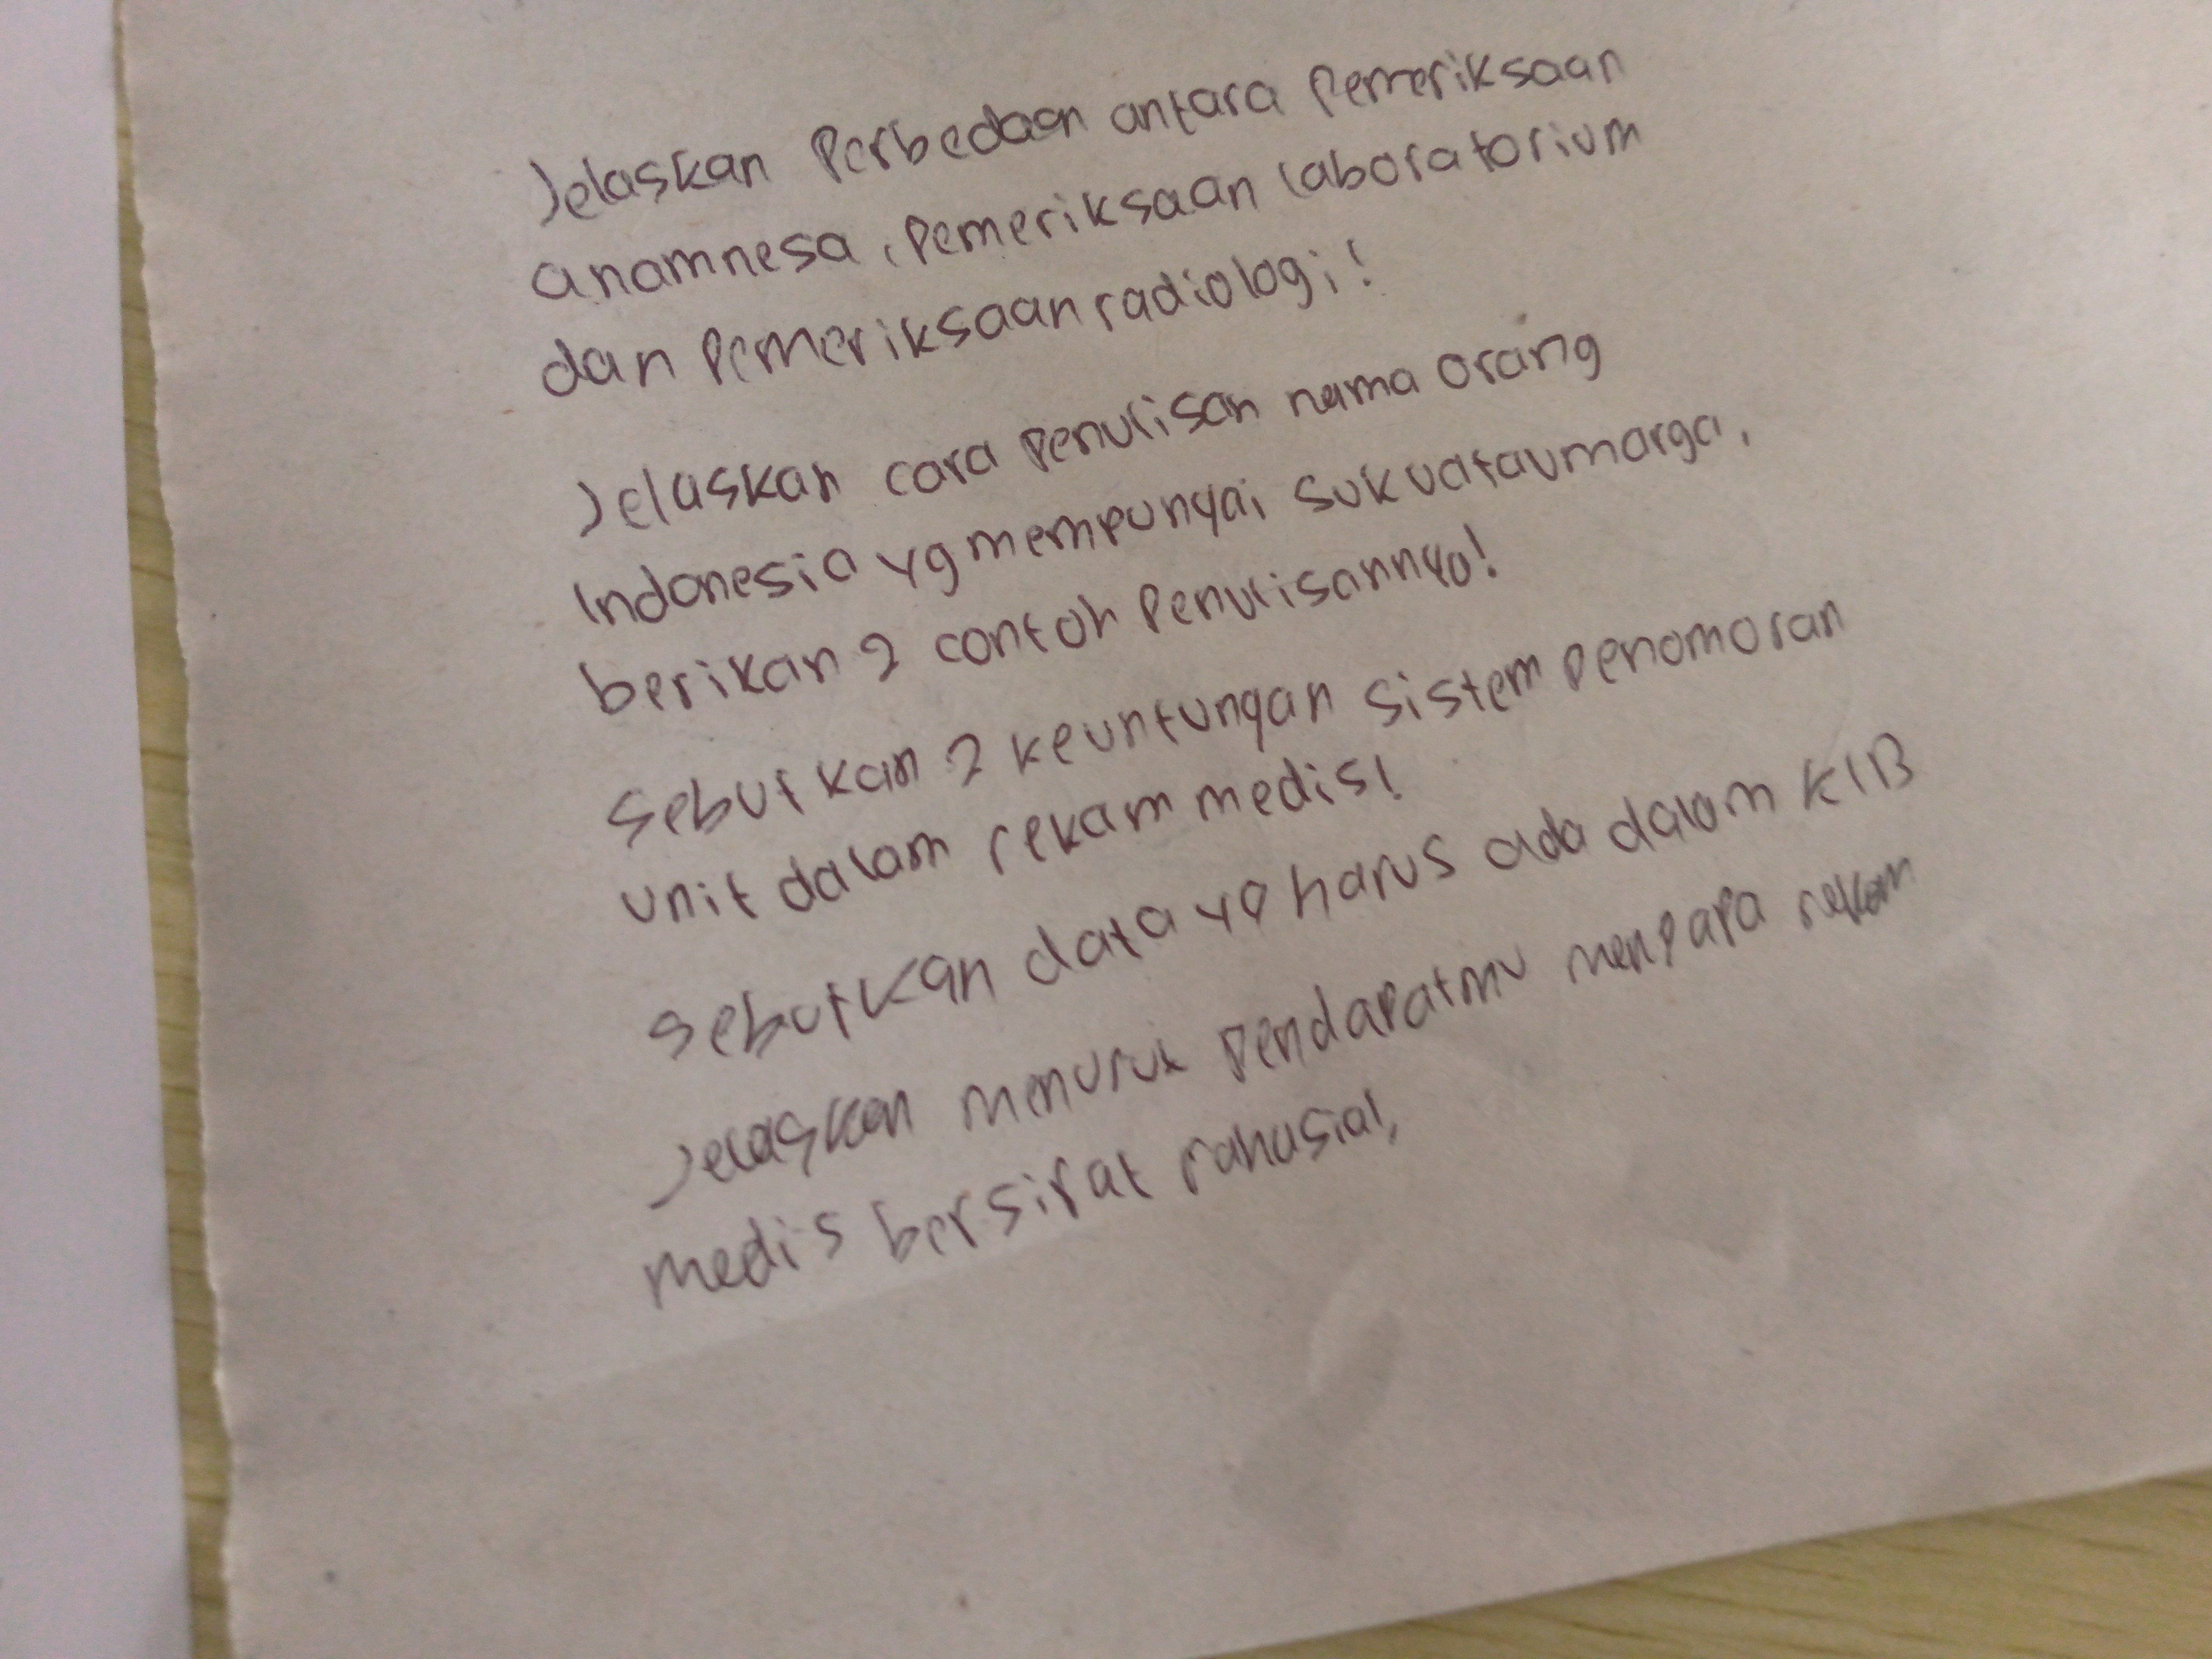 Jelaskan Perbedaan antara Pemeriksaan
anamnesa, Pemeriksaan laboratorium
dan Pemeriksaan radiologi!
Jelaskan cara Penulisan nama orang
Indonesia yg mempunyai suku atau marga,
berikan 2 contoh Penulisannya!
Sebutkan 2 keuntungan sistem penomoran
unit dalam rekam medis!
Sebutkan data yg harus ada dalam KIB
Jelaskan menurut Pendapatmu mengapa rekam
medis bersifat rahasia!,